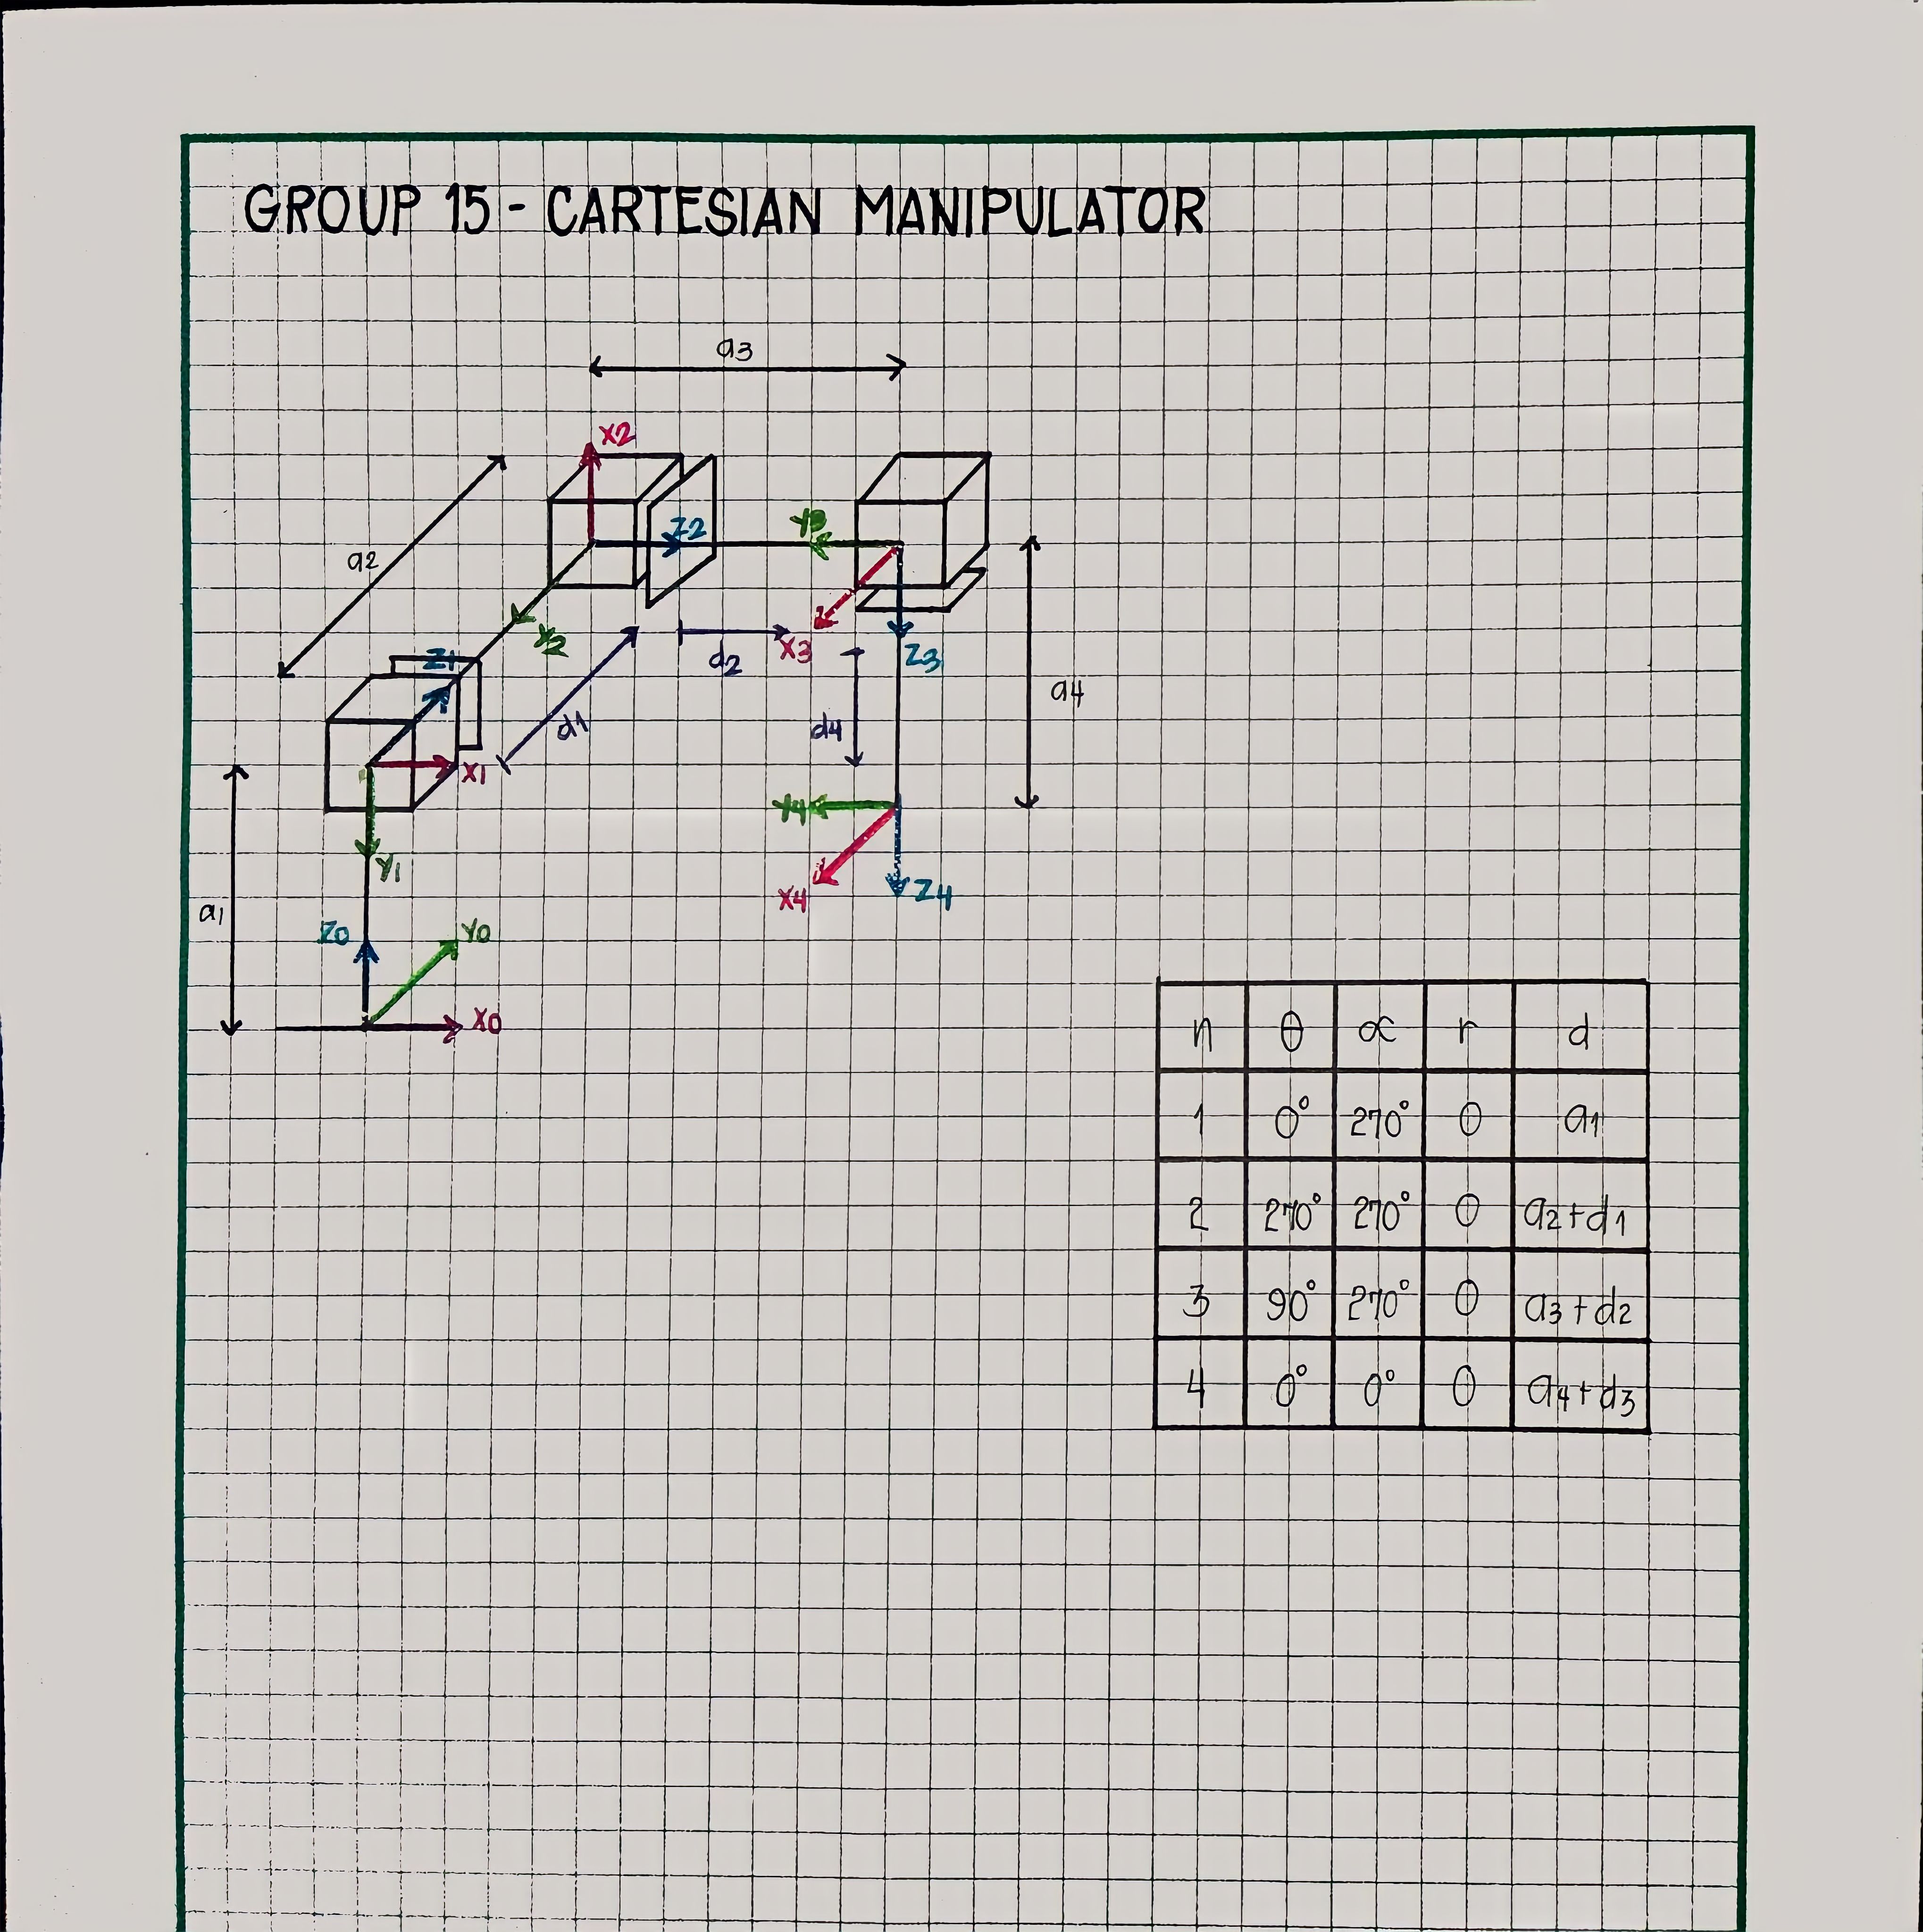 GROUP 15 - CARTESIAN MANIPULATOR
a3
X2
a2
Z2
Y3
Y2
d2
X3
Z3
Z1
d1
d4
a4
X1
Y1
Y4
a1
Z0
Y0
X4
Z4
X0
n θ α r d
1 0° 270° 0 a1
2 270° 270° 0 a2+d1
3 90° 270° 0 a3+d2
4 0° 0° 0 a4+d3